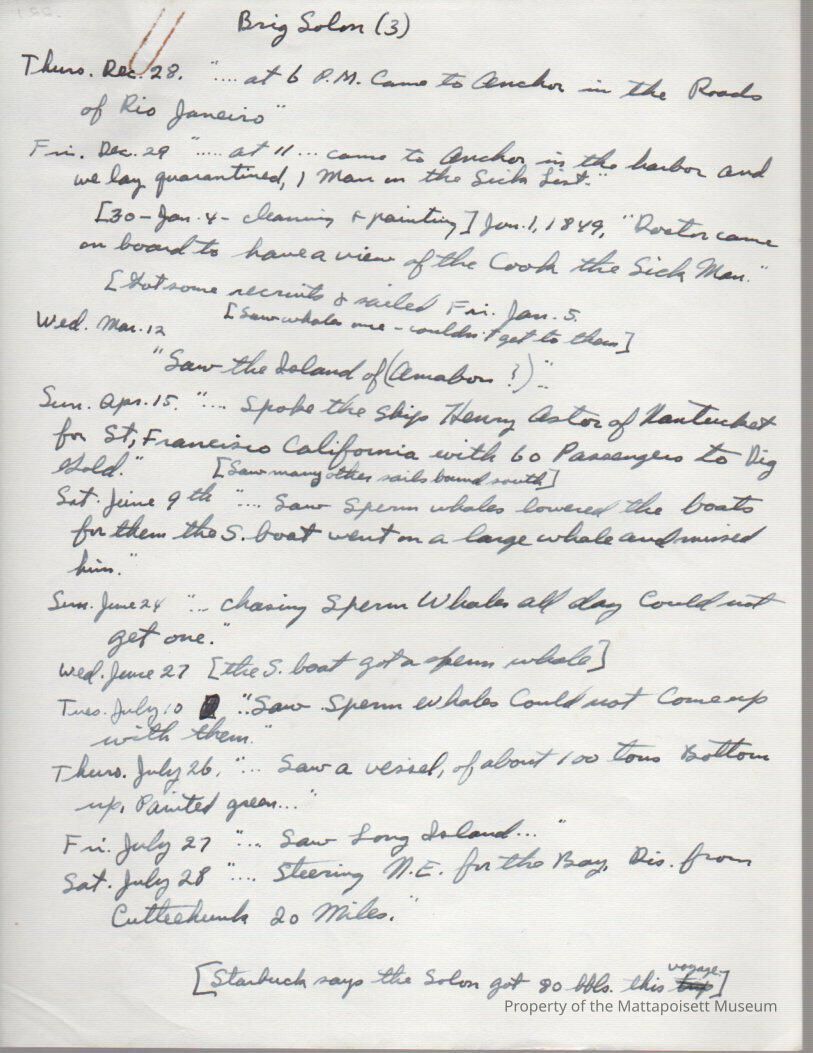 Brig Solon (3)
Thurs. Dec. 28. ".... at 6 P.M. Came to Anchor in the Roads
of Rio Janeiro"
Fri. Dec. 29 "..... at 11 ... came to Anchor in the harbor and
we lay quarantined, 1 Man on the Sick List."
[30 - Jan. 4 - cleaning & painting] Jan. 1, 1849, "Doctor came
on board to have a view of the Cook the Sick Man."
[Got some recruits & sailed Fri. Jan. 5.
Wed. Mar. 12 [Saw whales once - couldn't get to them]
"Saw the Island of (Anabon ?)"..
Sun. Apr. 15. ".... Spoke the Ship Henry Astor of Nantucket
for St, Francisco California with 60 Passengers to Dig
Gold." [Saw many other sails bound south]
Sat. June 9th ".... Saw Sperm whales lowered the boats
for them the S. boat went on a large whale and missed
him."
Sun. June 24 "... chasing Sperm Whales all day Could not
get one."
Wed. June 27 [the S. boat got a sperm whale]
Tues. July 10 "..Saw Sperm Whales Could not Come up
with them."
Thurs. July 26, "... Saw a vessel, of about 100 tons Bottom
up, Painted green..."
Fri. July 27 ".... Saw Long Island..."
Sat. July 28 ".... Steering N.E. for the Bay, Dis. from
Cuttehunk 20 Miles."
[Starbuck says the Solon got 80 bbls. this voyage.]
Property of the Mattapoisett Museum